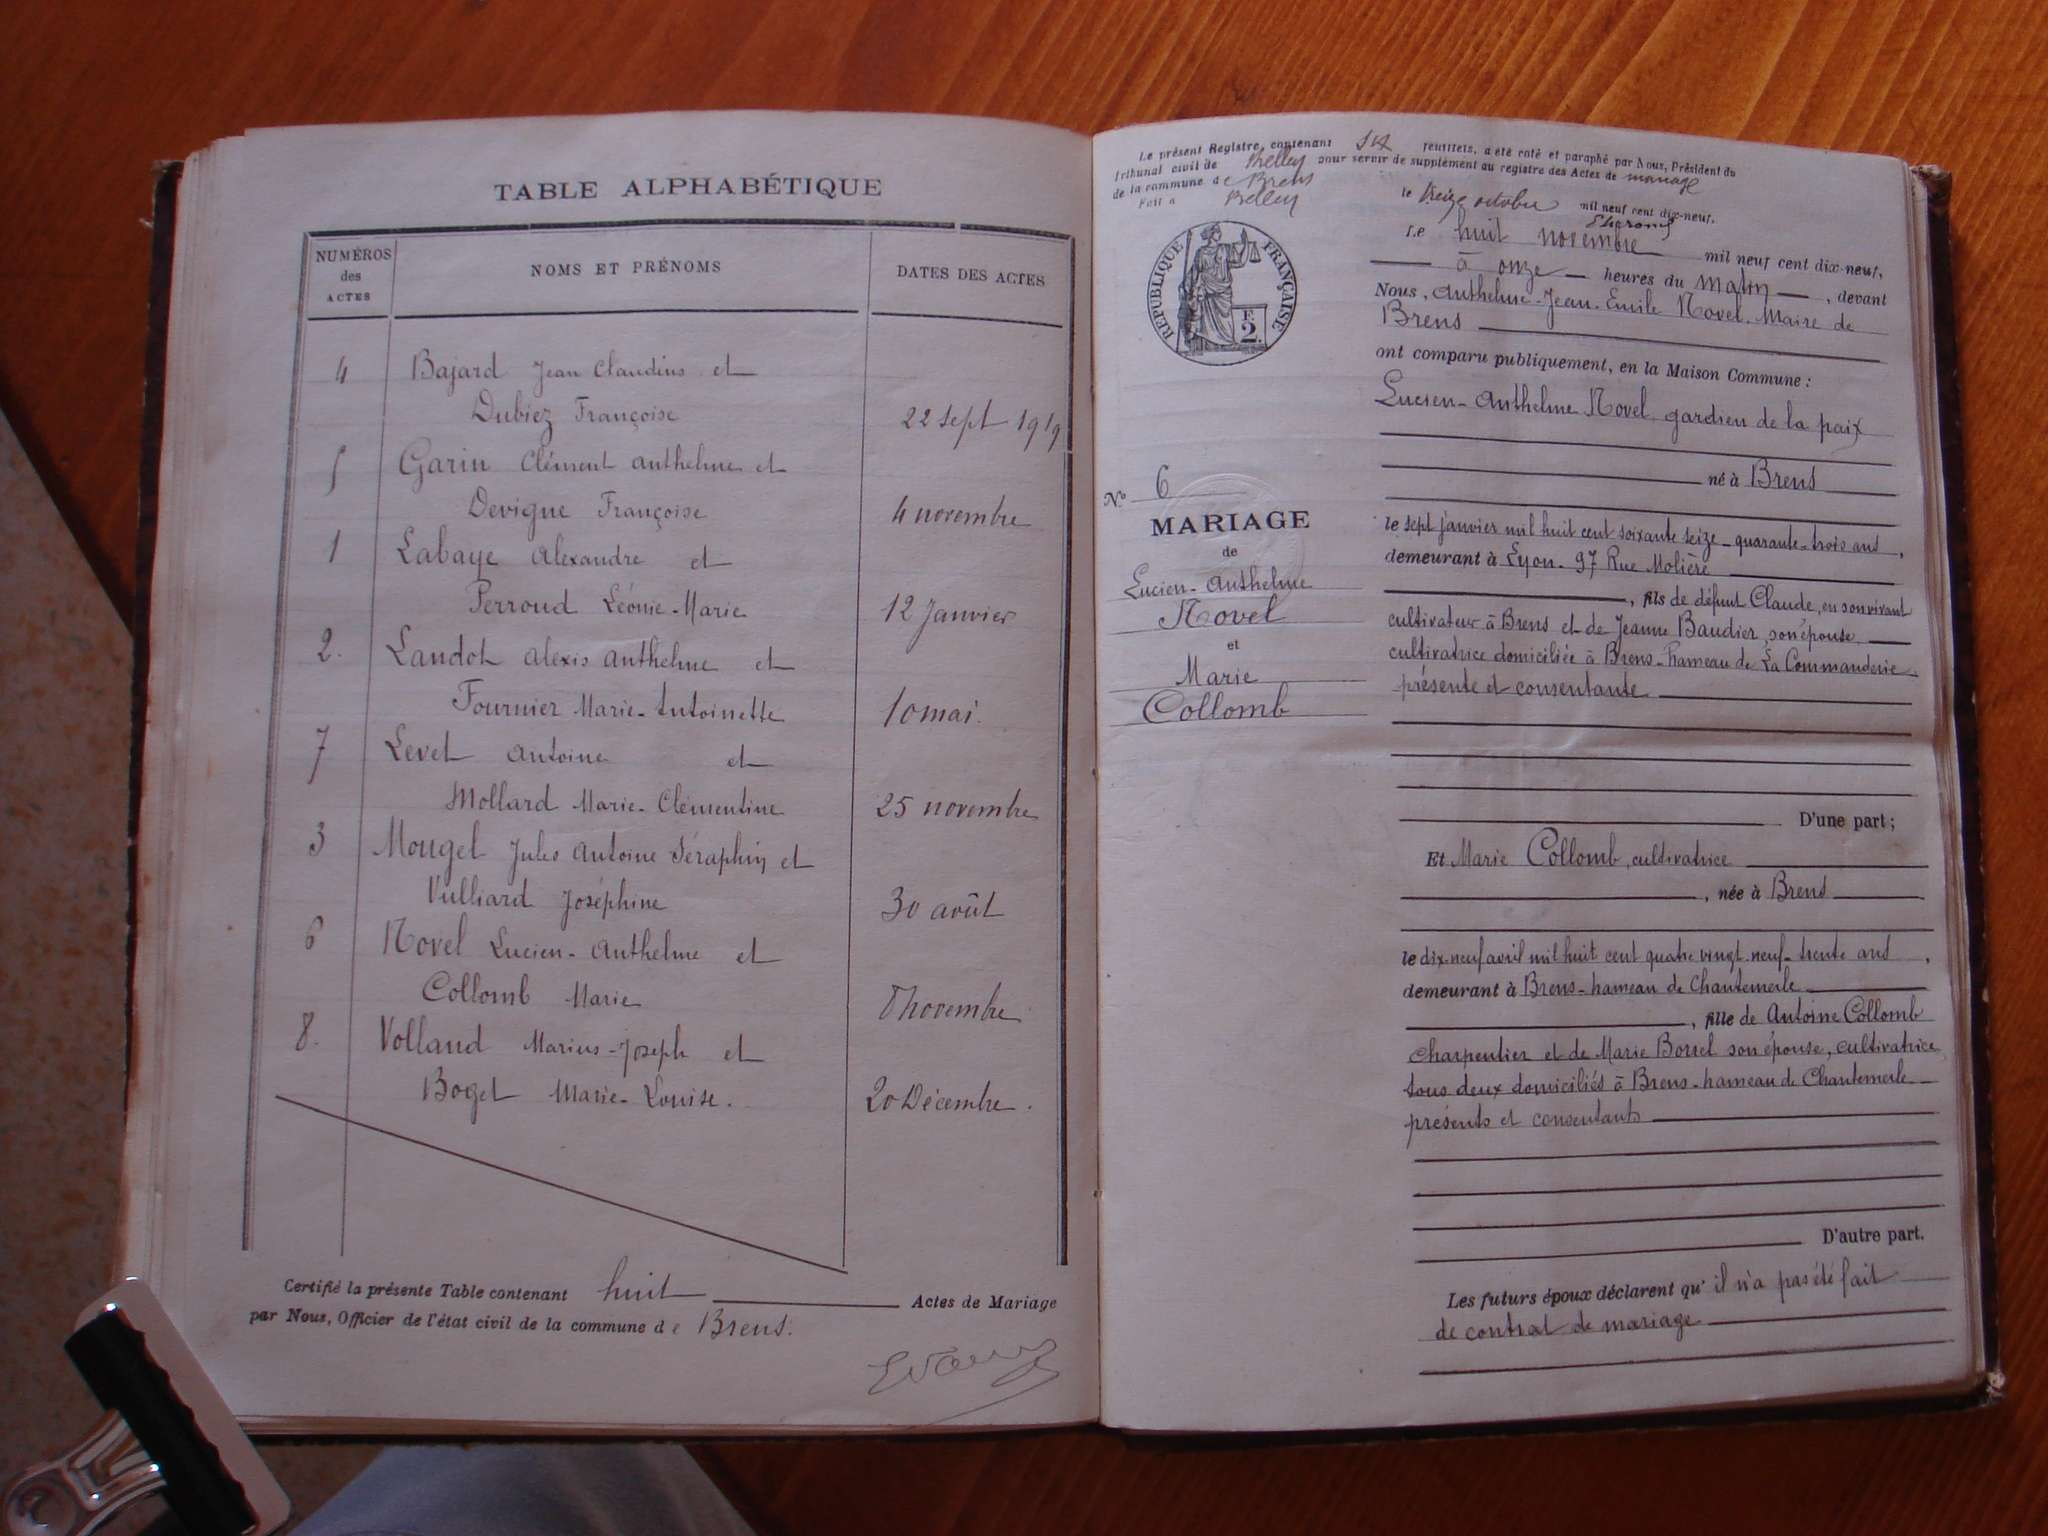 TABLE ALPHABÉTIQUE
NUMÉROS
des
ACTES
NOMS ET PRÉNOMS
DATES DES ACTES
4 Bajard Jean Claudius et
Dubiez Françoise 22 sept 1919
5 Garin Clément Anthelme et
Devigne Françoise 4 novembre
1 Labaye Alexandre et
Perroud Léonie-Marie 12 Janvier
2. Landot Alexis Anthelme et
Fournier Marie-Antoinette 10 mai.
7 Levet Antoine et
Mollard Marie-Clémentine 25 novembre
3 Mougel Jules Antoine Séraphin et
Vulliard Joséphine 30 août
6 Novel Lucien-Anthelme et
Collomb Marie 8 novembre
8. Volland Marius-Joseph et
Boget Marie-Louise. 20 Décembre.
Certifié la présente Table contenant huit Actes de Mariage
par Nous, Officier de l'état civil de la commune de Brens.
Le présent Registre, contenant six feuillets, a été coté et paraphé par Nous, Président du
Tribunal civil de Belley pour servir de supplément au registre des Actes de mariage
de la commune de Brens
Fait à Belley le treize octobre mil neuf cent dix-neuf.
RÉPUBLIQUE FRANÇAISE
F.
2.
Le huit novembre mil neuf cent dix-neuf,
à onze heures du Matin, devant
Nous, Anthelme-Jean-Emile Novel. Maire de
Brens
ont comparu publiquement, en la Maison Commune :
Lucien-Anthelme Novel gardien de la paix
né à Brens
No 6
MARIAGE
de
Lucien-Anthelme
Novel
et
Marie
Collomb
le sept janvier mil huit cent soixante seize - quarante-trois ans,
demeurant à Lyon-97 Rue Molière
, fils de défunt Claude, en son vivant
cultivateur à Brens et de Jeanne Baudier, son épouse
cultivatrice domiciliée à Brens-hameau de La Commanderie
présente et consentante
D'une part;
Et Marie Collomb, cultivatrice
, née à Brens
le dix-neuf avril mil huit cent quatre vingt-neuf-trente ans,
demeurant à Brens-hameau de Chantemerle
, fille de Antoine Collomb
charpentier et de Marie Borrel son épouse, cultivatrice
tous deux domiciliés à Brens-hameau de Chantemerle
présents et consentants
D'autre part.
Les futurs époux déclarent qu'il n'a pas été fait
de contrat de mariage